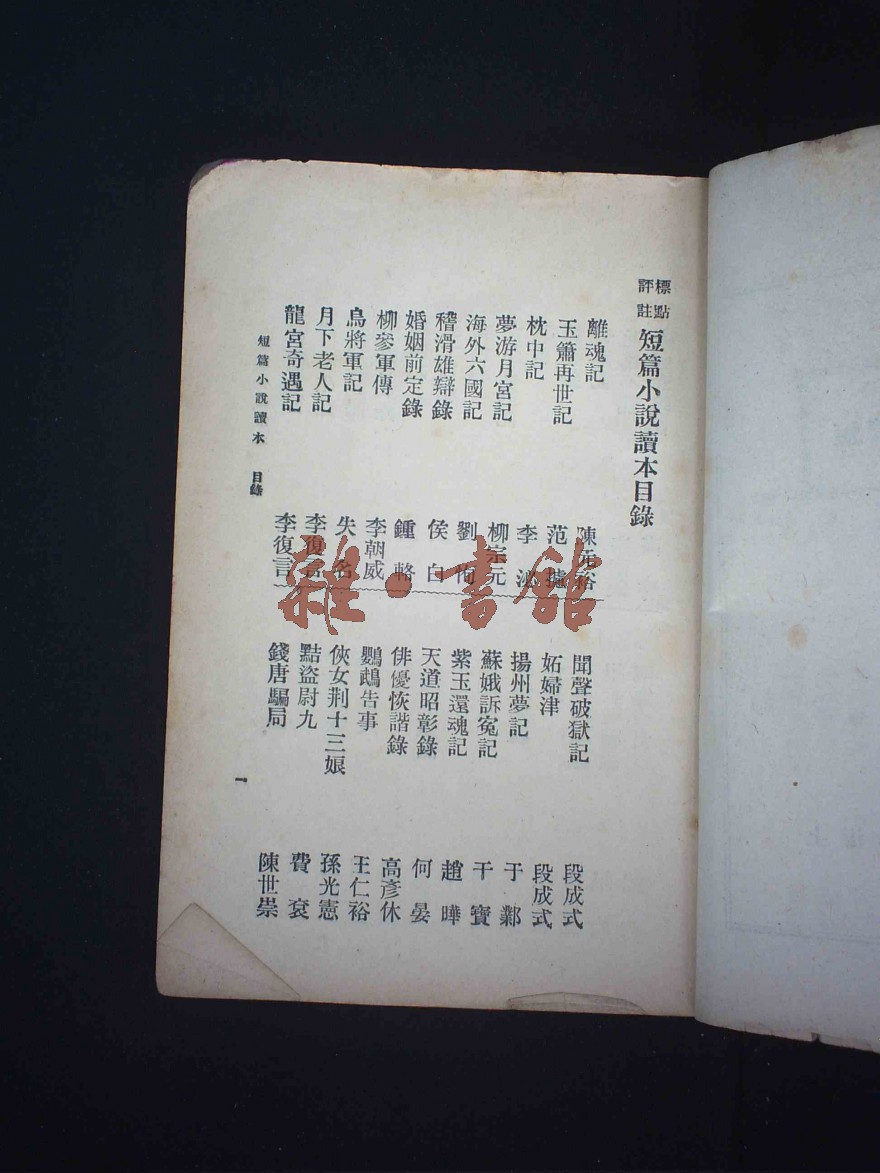 標點
評註
短篇小說讀本目錄
離魂記 陳元
玉簫再世記 范攄
枕中記 李泌
夢游月宮記 柳宗元
海外六國記 劉恂
稽滑雄辯錄 侯白
婚姻前定錄 鍾輅
柳參軍傳 李朝威
烏將軍記 失名
月下老人記 李復言
龍宮奇遇記 李復言
聞聲破獄記 段成式
妬婦津 段成式
揚州夢記 于鄴
蘇娥訴冤記 干寶
紫玉還魂記 趙曄
天道昭彰錄 何晏
俳優恢諧錄 高彥休
鸚鵡告事 王仁裕
俠女荆十三娘 孫光憲
黠盜尉九 費袞
錢唐騙局 陳世崇
短篇小說讀本 目錄 一
雜·書館